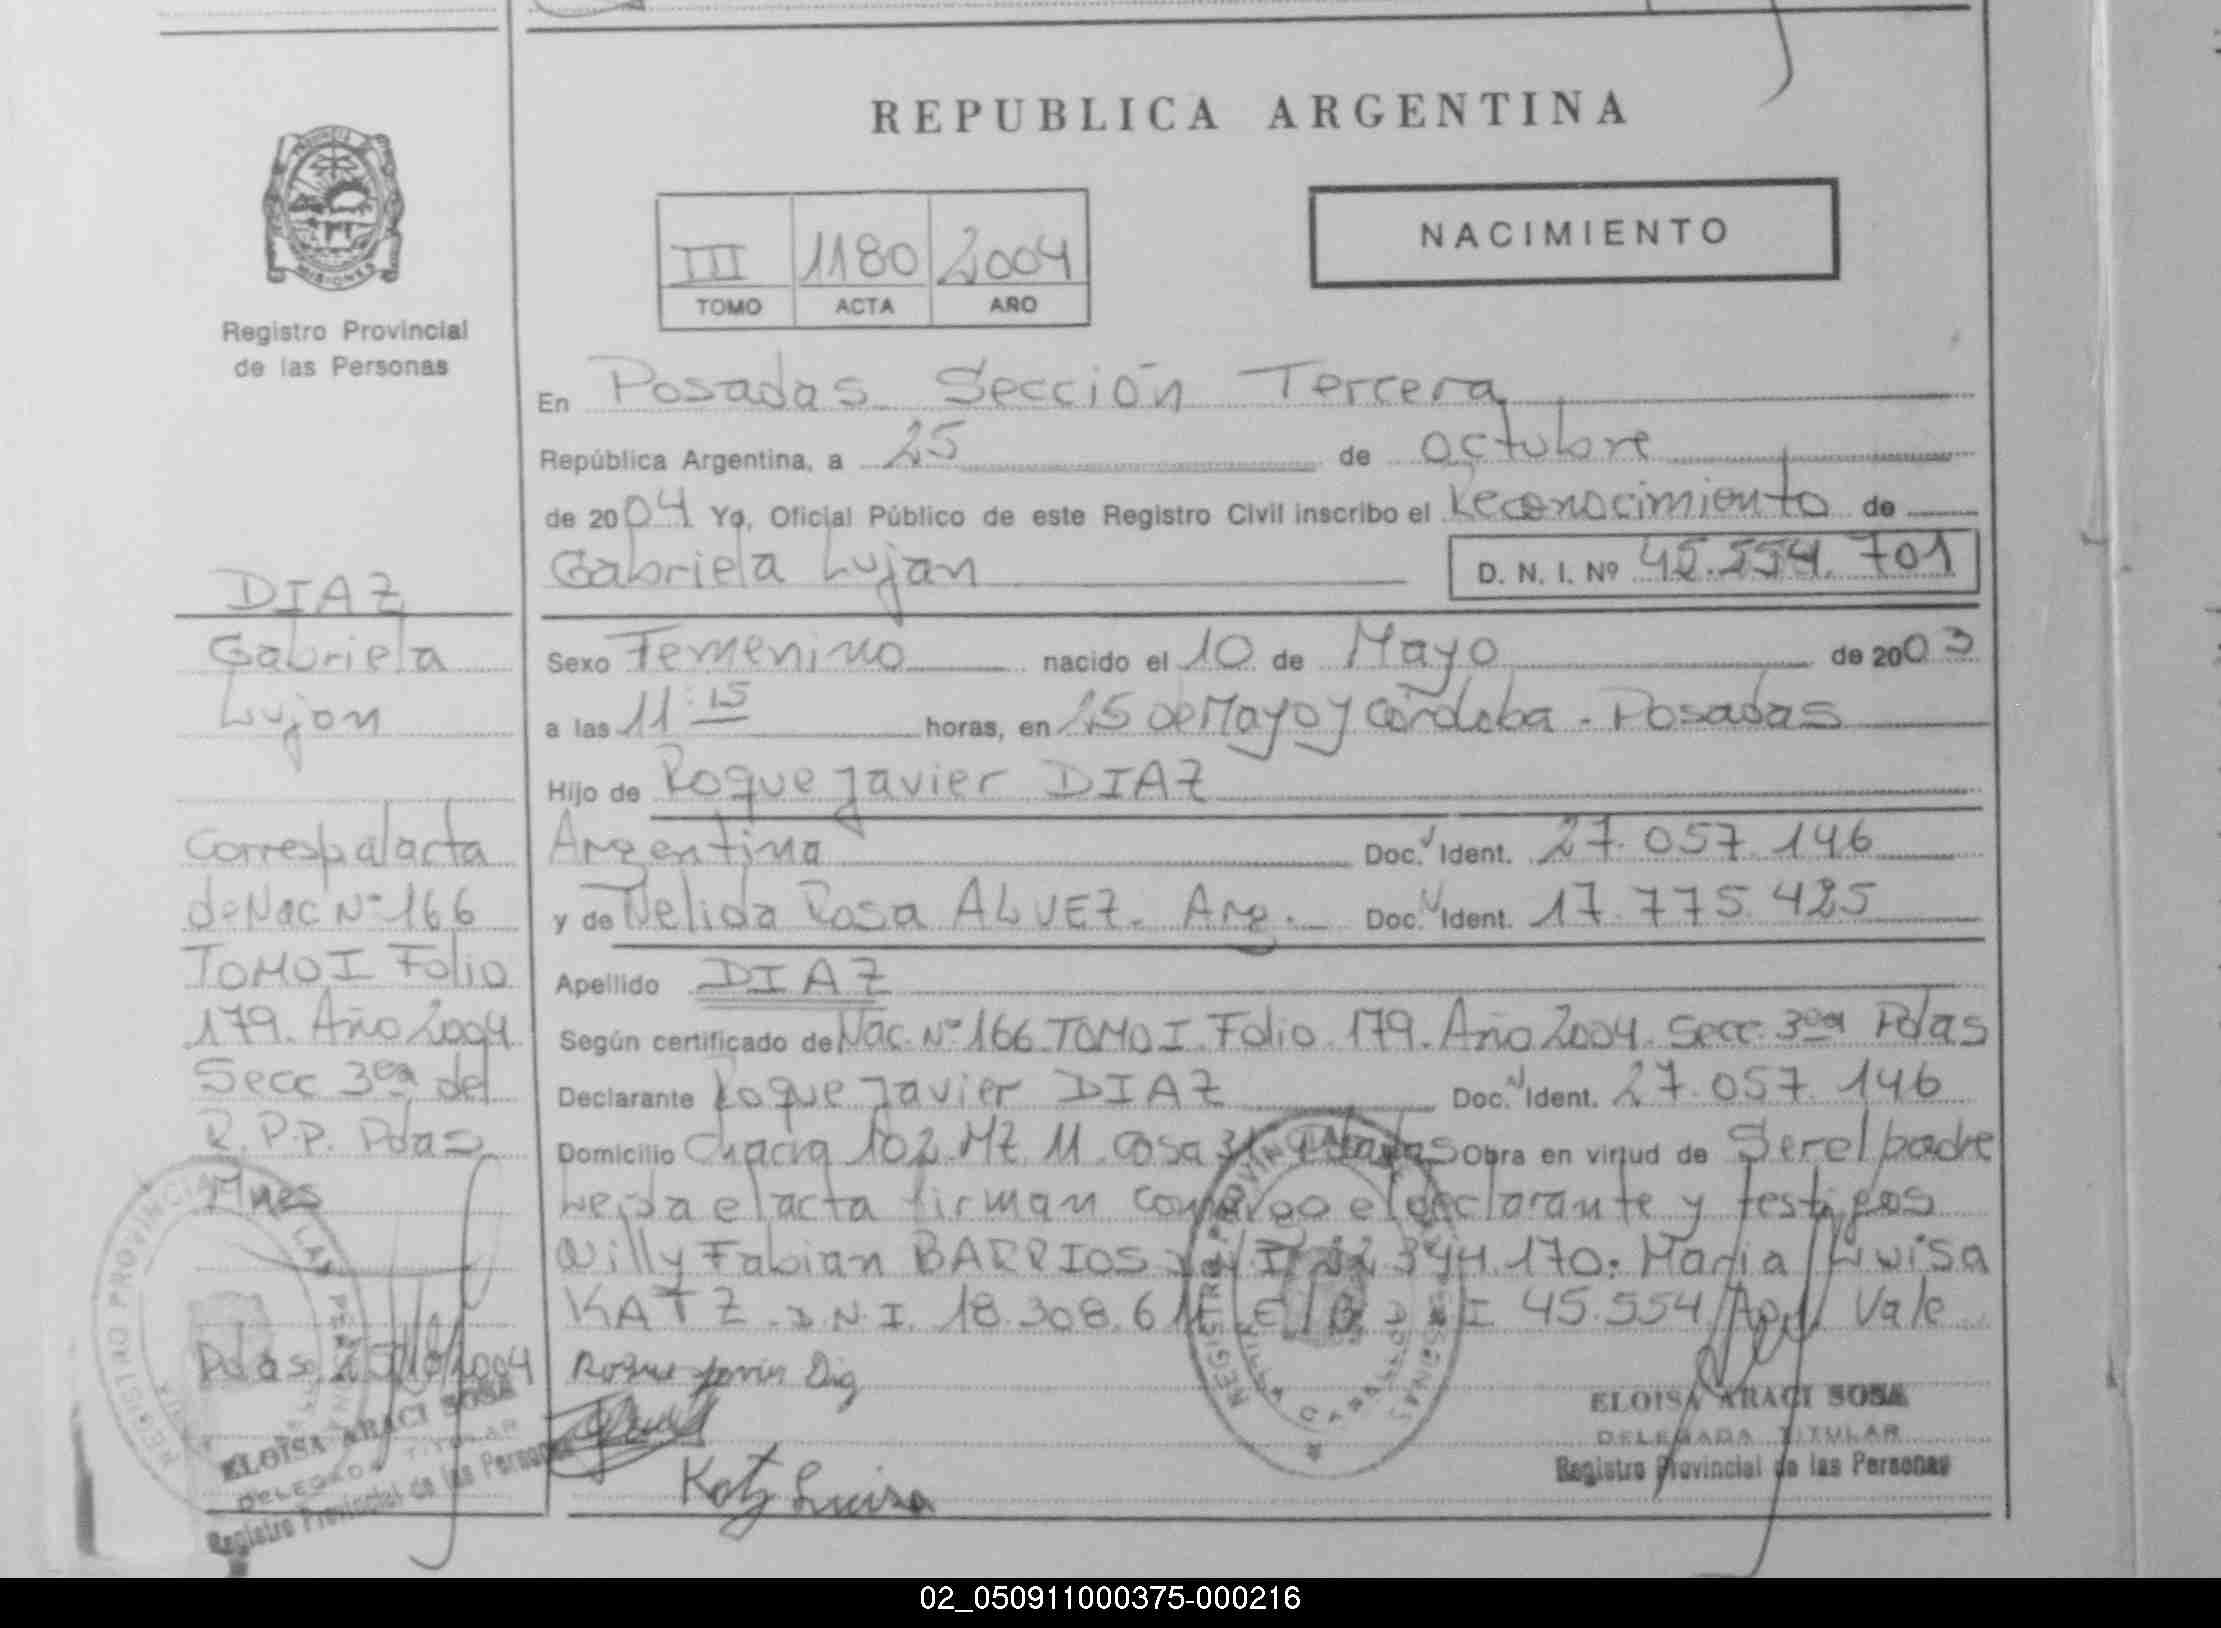 REPUBLICA ARGENTINA
PROVINCIA
MISIONES
Registro Provincial
de las Personas
III 1180 2004
TOMO ACTA AÑO
NACIMIENTO
En Posadas Sección Tercera
República Argentina, a 25 de octubre
de 2004 Yo, Oficial Público de este Registro Civil inscribo el Reconocimiento de
Gabriela Lujan D. N. I. Nº 45.554.701
Sexo Femenino nacido el 10 de Mayo de 2003
a las 11:15 horas, en 25 de Mayo y Córdoba - Posadas
Hijo de Roque Javier DIAZ
Argentina Doc. Ident. 27.057.146
y de Nelida Rosa ALVEZ. Arg. Doc. Ident. 17.775.425
Apellido DIAZ
Según certificado de Nac. Nº 166 TOMO I Folio 179. Año 2004. Secc. 3era Pdas
Declarante Roque Javier DIAZ Doc. Ident. 27.057.146
Domicilio Chacra 102 Mz 11 Casa Obra en virtud de Ser el padre
Leida el acta firman conmigo el declarante y testigos
Willy Fabian BARRIOS 394.170. Maria Luisa
KATZ. D.N.I. 18.308.6 45.554 Vale
Roque Javier Diaz
Katz Luisa
ELOISA ARACI SOSA
DELEGADA TITULAR
Registro Provincial de las Personas
DIAZ
Gabriela
Lujan
Corresp al acta
de Nac Nº 166
TOMO I Folio
179. Año 2004
Secc 3era del
R.P.P. Pdas
Mnes
Pdas 25/10/2004
ELOISA ARACI SOSA
DELEGADA TITULAR
Registro Provincial de las Personas
02_050911000375-000216